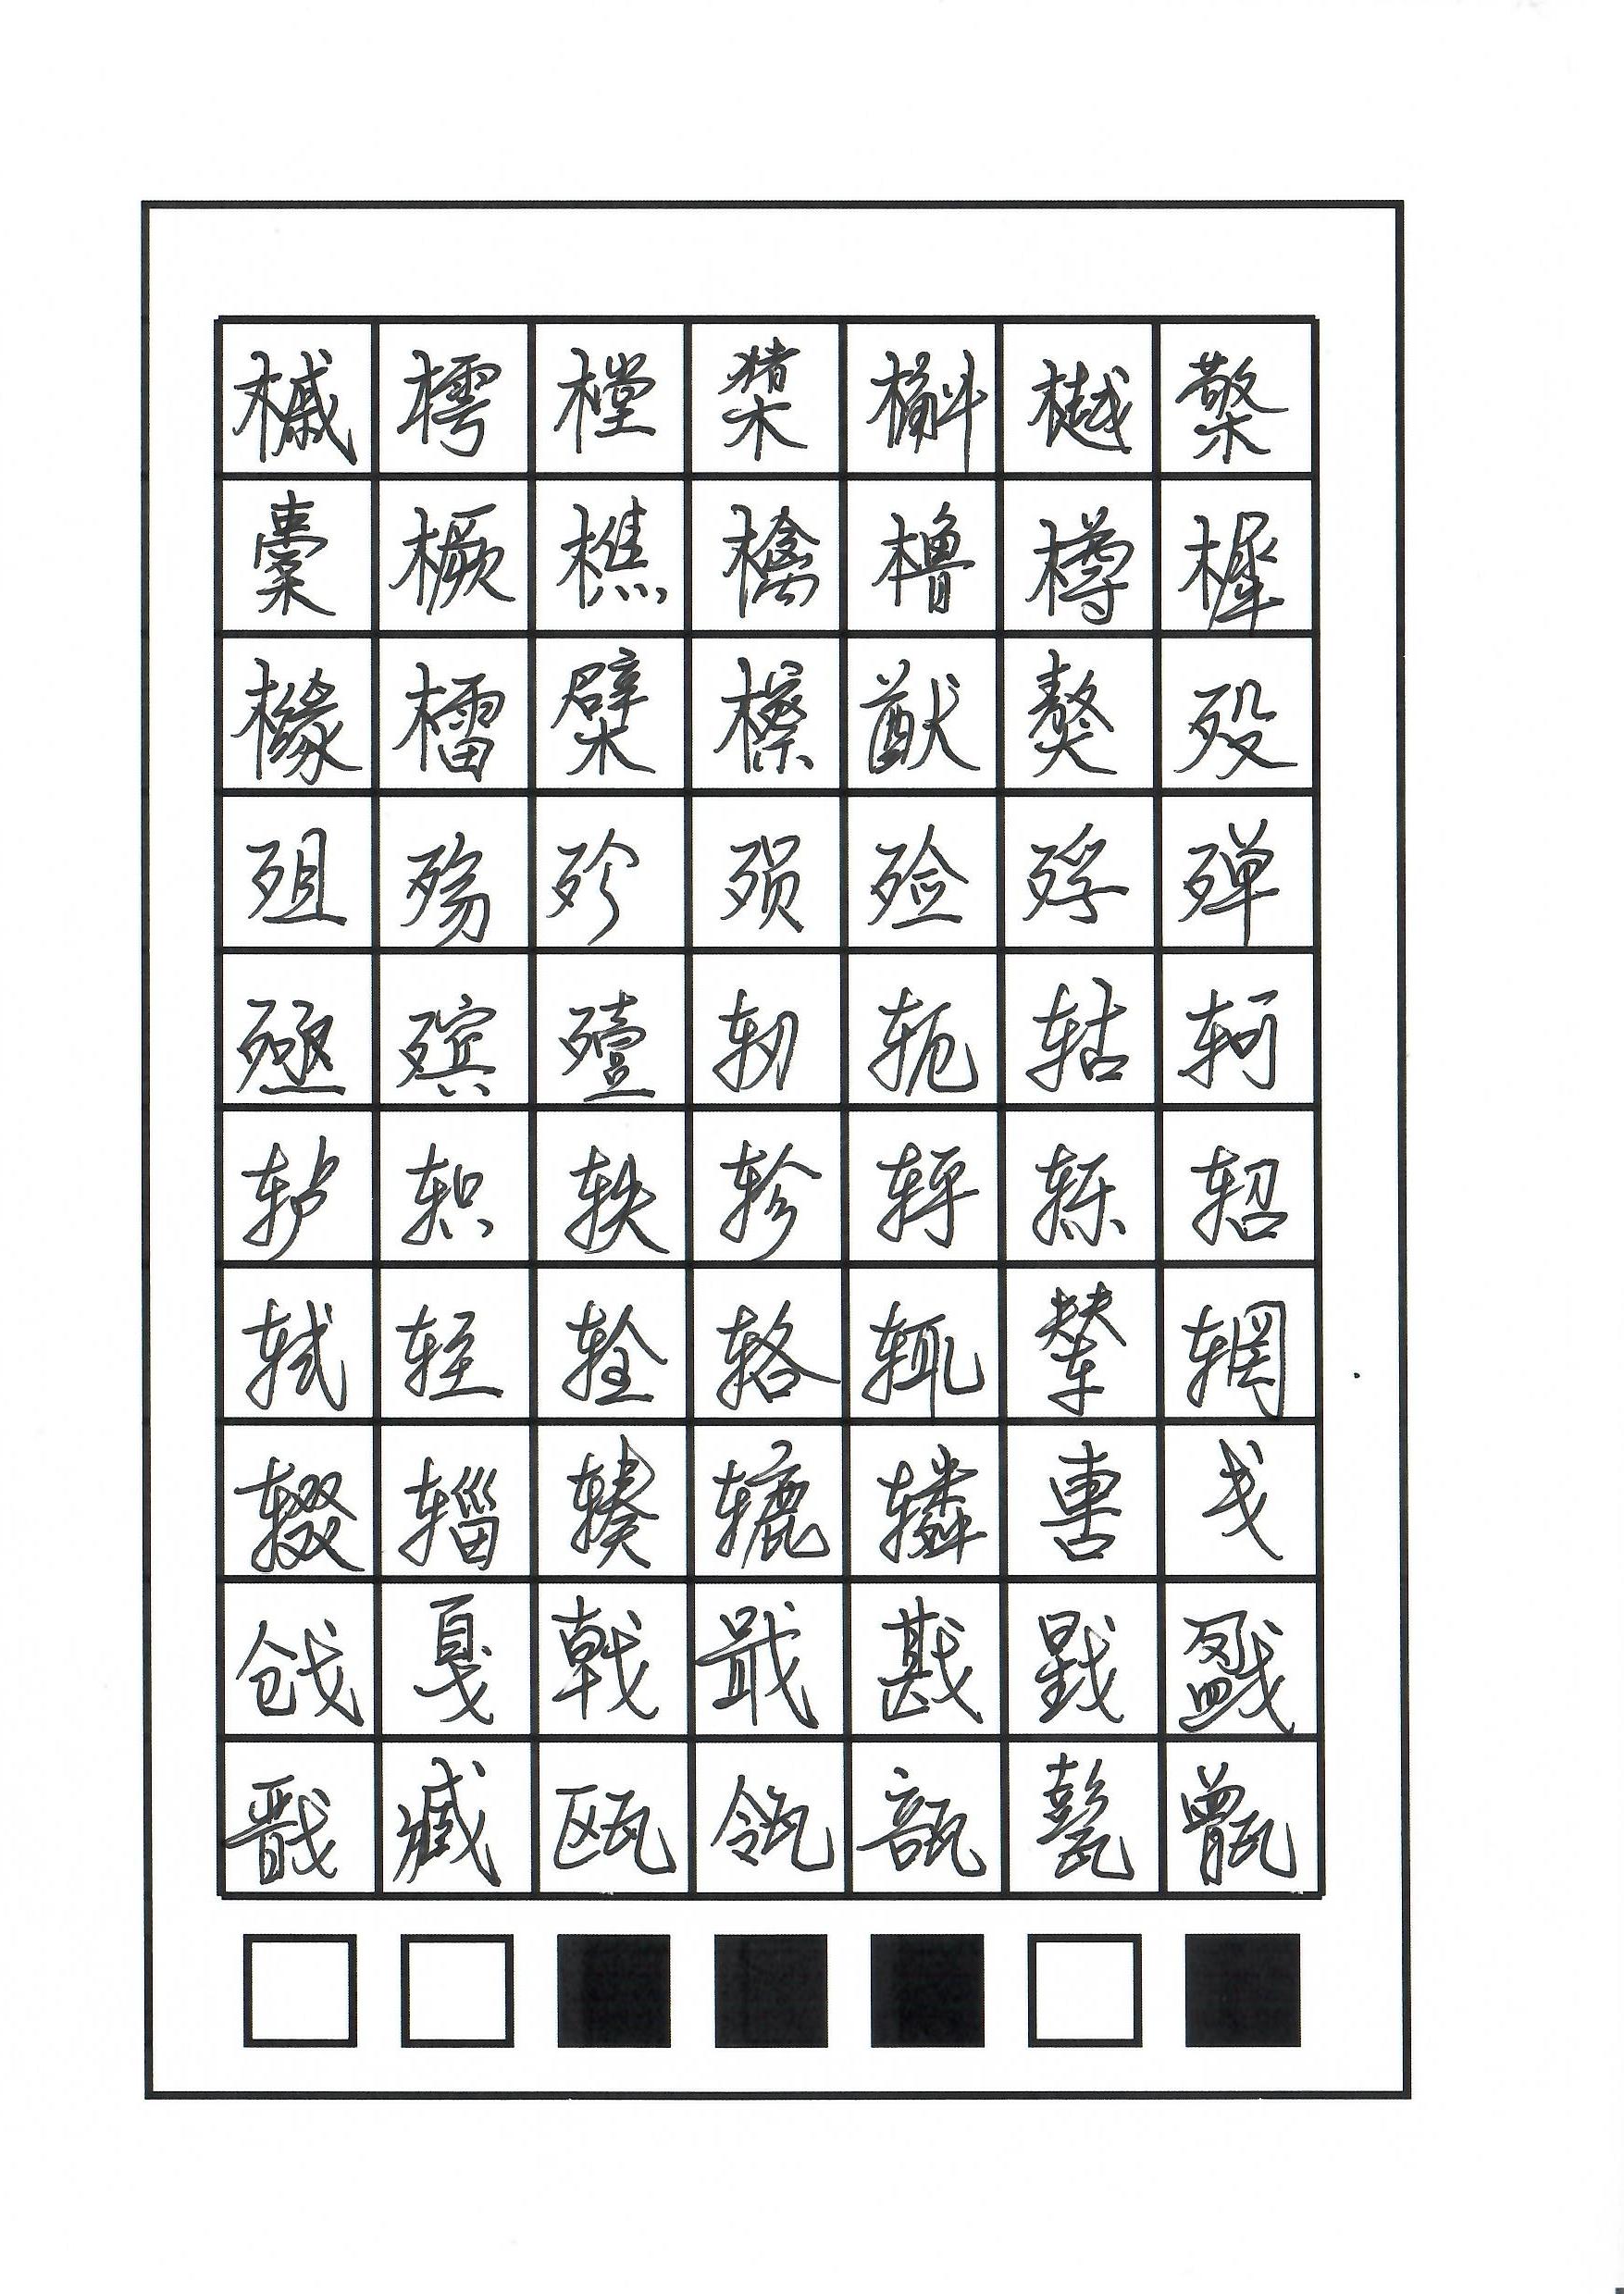 槭樗樘橥槲樾檠
橐橛樵檎橹樽樨
橼檑檗檫猷獒殁
殂殇殄殒殓殍殚
殛殡殪轫轭轱轲
轳轵轶轸轷轹轺
轼轾辁辂辄辇辋
辍辎辏辘辚軎戋
戗戛戟戢戡戥戤
戬臧瓯瓴瓿甏甑